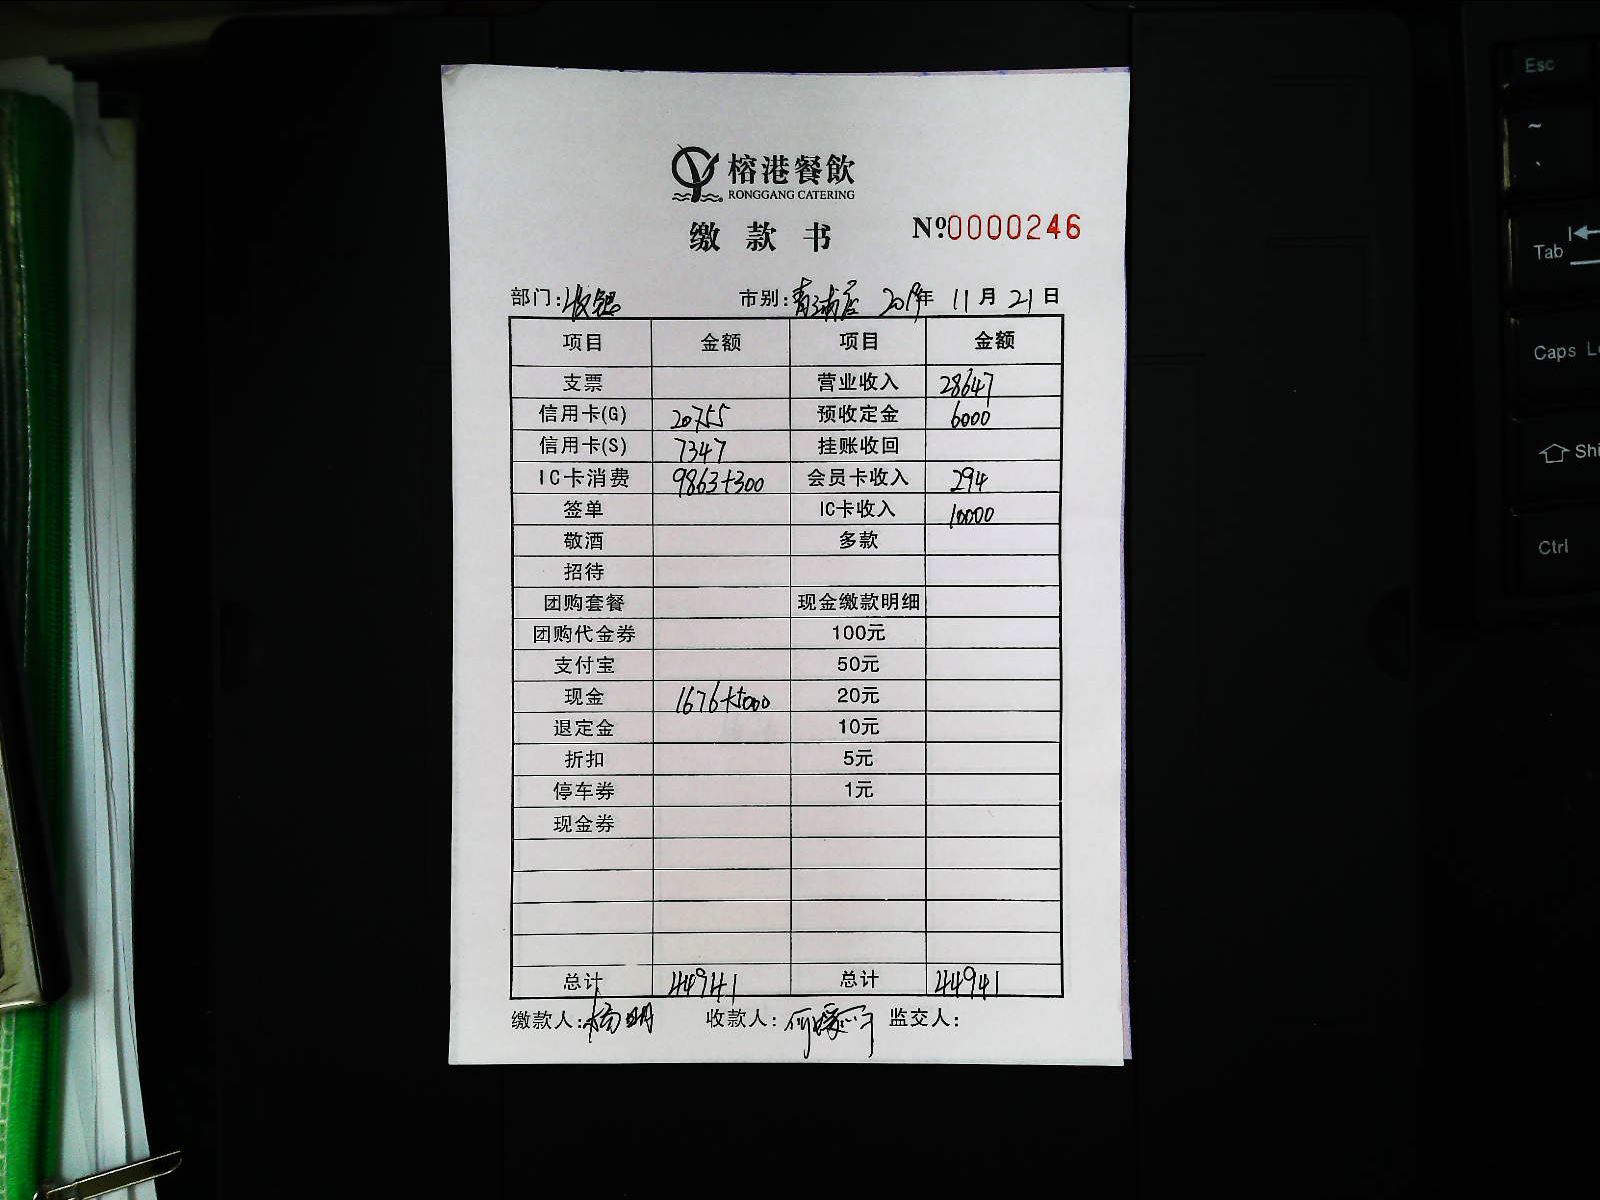 榕港餐飲
RONGGANG CATERING
缴款书 №0000246
部门:收银 市别:青浦店 2019年 11月 21日
项目 金额 项目 金额
支票 营业收入 28647
信用卡(G) 20755 预收定金 6000
信用卡(S) 7347 挂账收回
IC卡消费 9863+300 会员卡收入 294
签单 IC卡收入 10000
敬酒 多款
招待
团购套餐 现金缴款明细
团购代金券 100元
支付宝 50元
现金 1676+5000 20元
退定金 10元
折扣 5元
停车券 1元
现金券
总计 44941 总计 44941
缴款人:杨明 收款人: 监交人:
Esc
~
`
Tab
Caps
Shi
Ctrl